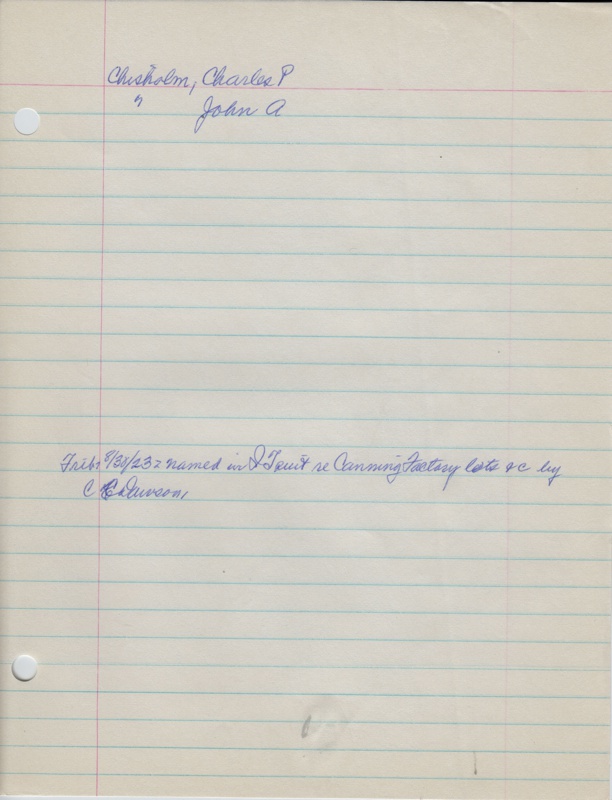 Chisholm, Charles P
" John A
Trib: 8/30/23 = named in re Canning Factory lots &c by
C Dawson,